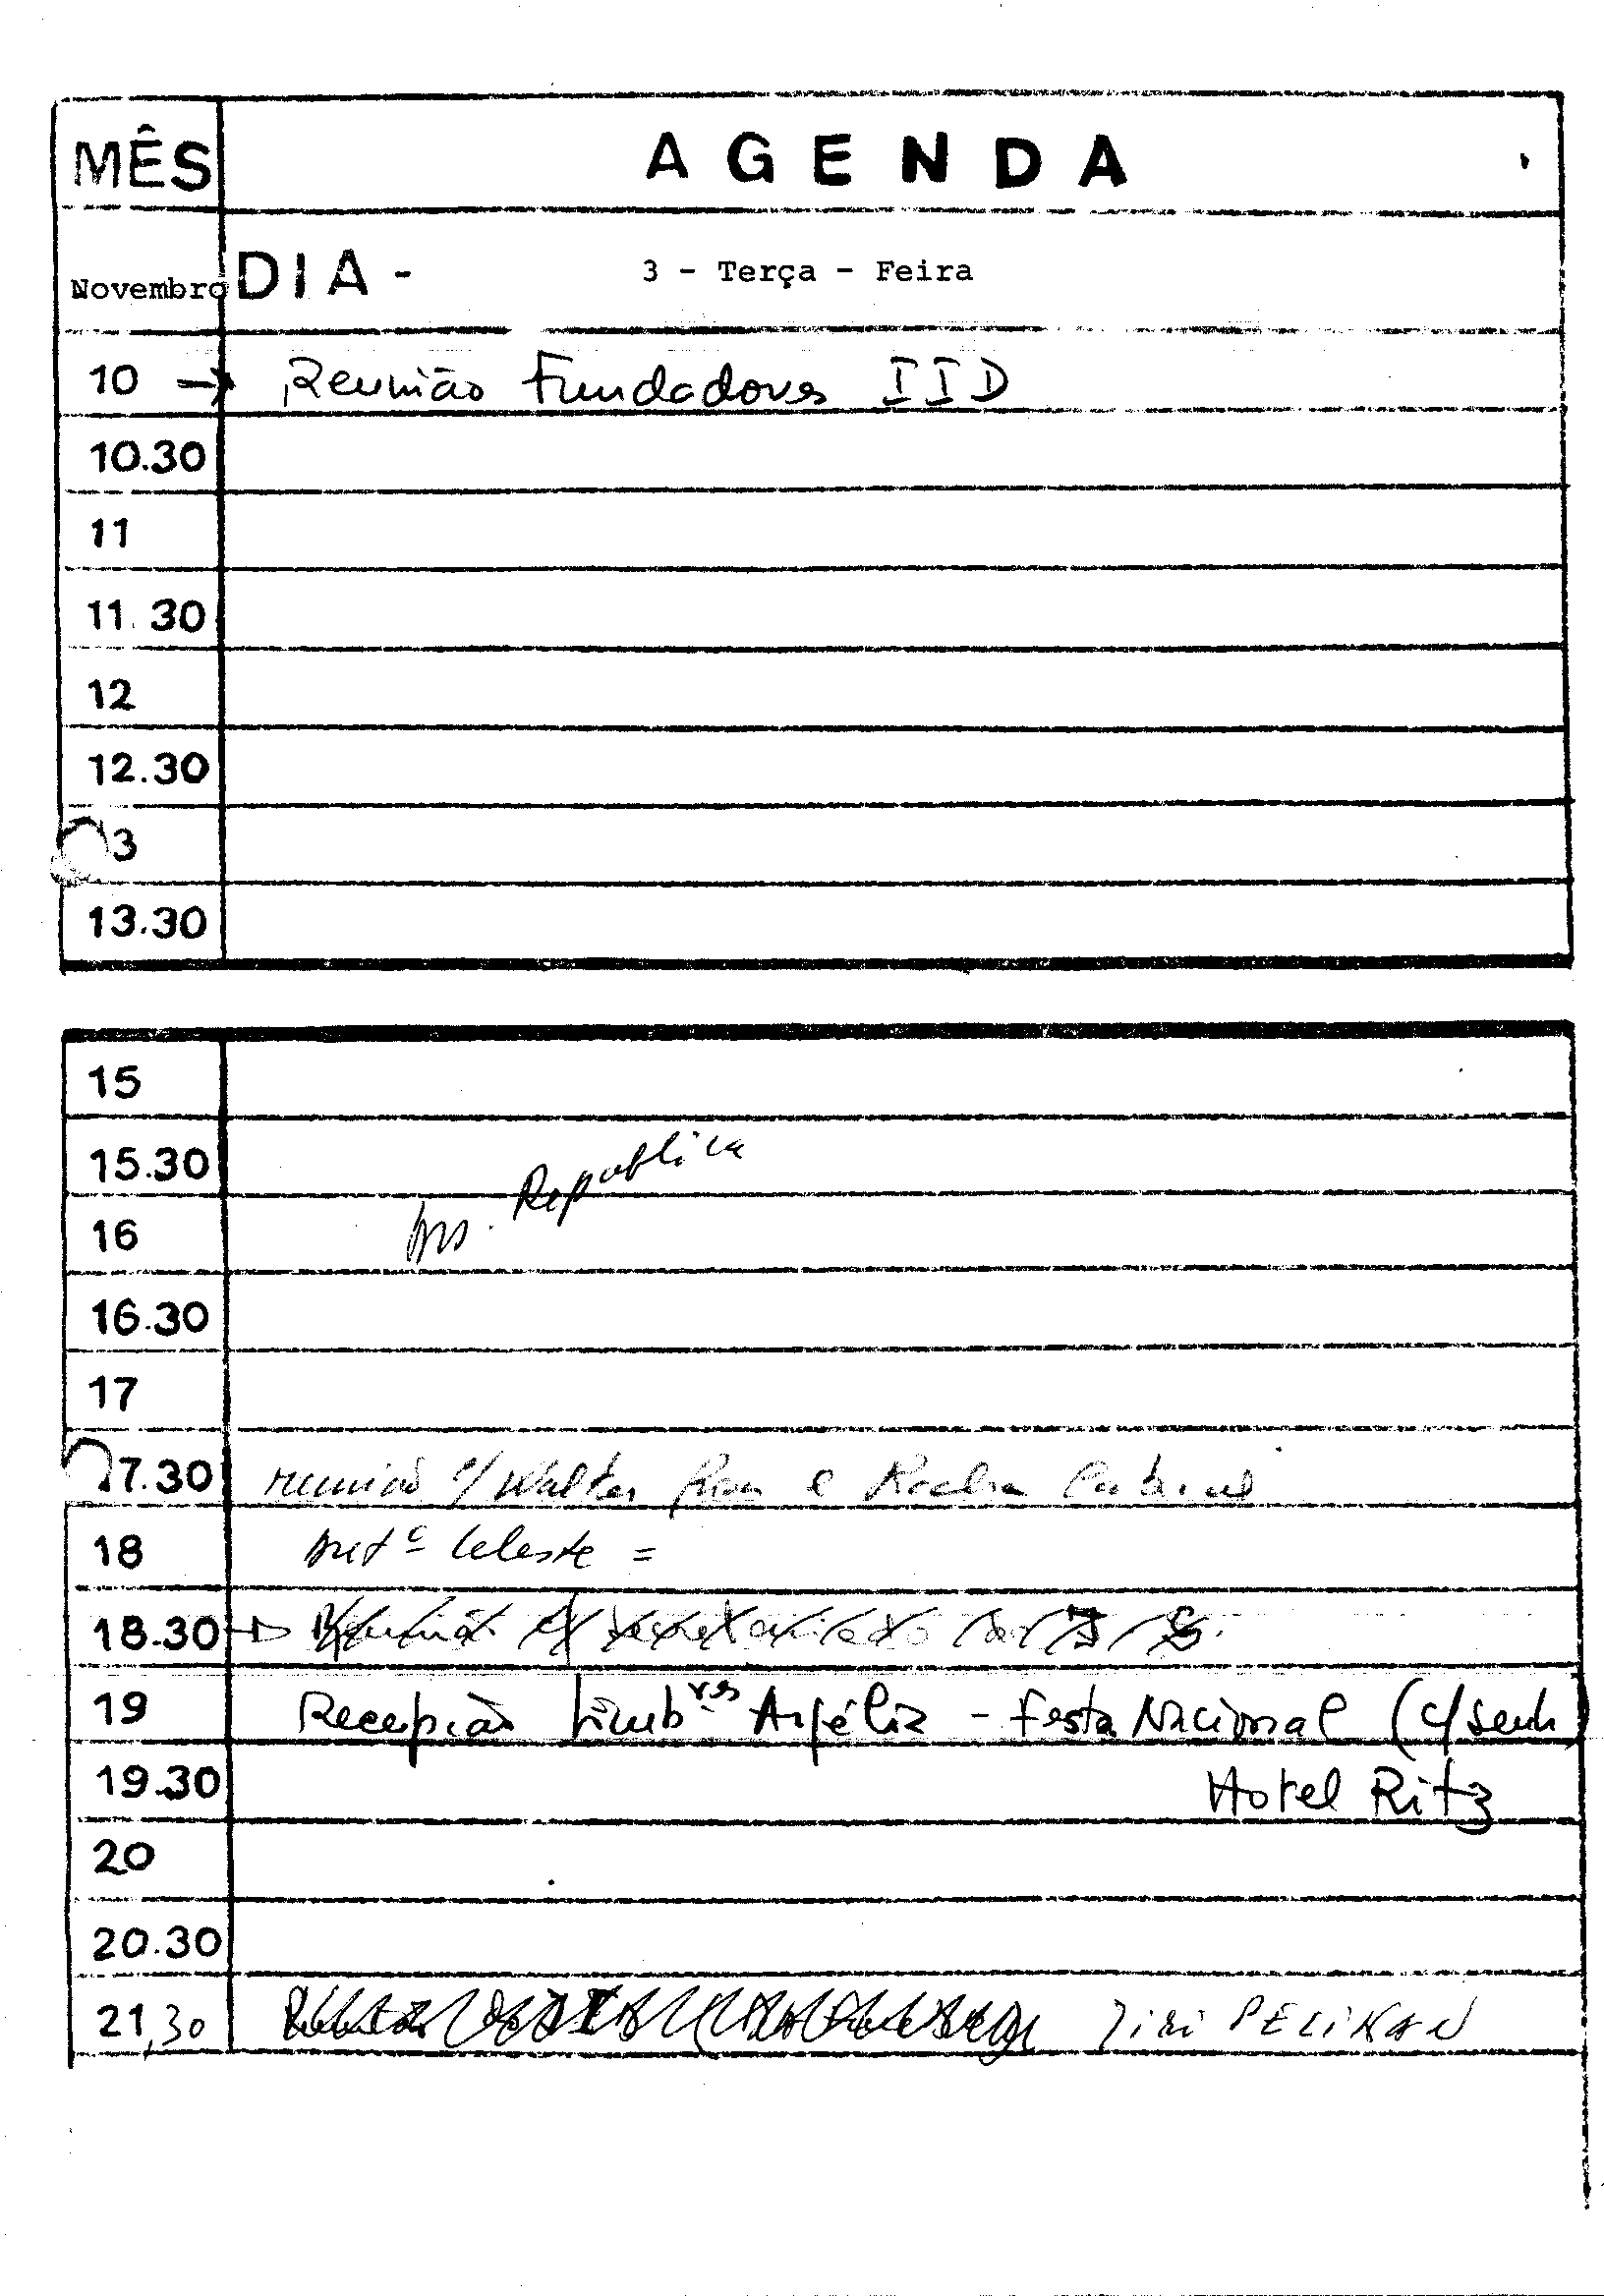 MÊS AGENDA
Novembro DIA - 3 - Terça - Feira
10 → Reunião Fundadores IID
10.30
11
11.30
12
12.30
3
13.30
15
15.30
Republica
16
16.30
17
17.30 reunião c/ Walter e Rocha Cabral
18 Celeste =
18.30
19 Recepção Argélia - Festa Nacional (c/senh
19.30 Hotel Ritz
20
20.30
21,30 Jiri PELIKAN